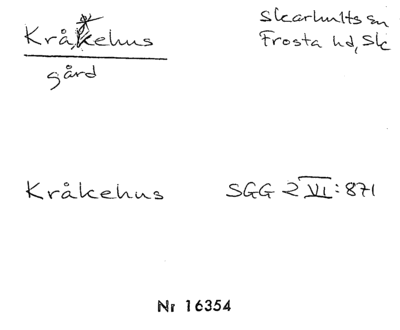 Kråkehus
gård
Skarhults sn
Frosta hd, Sk
Kråkehus SGG 2 VI:871
Nr 16354